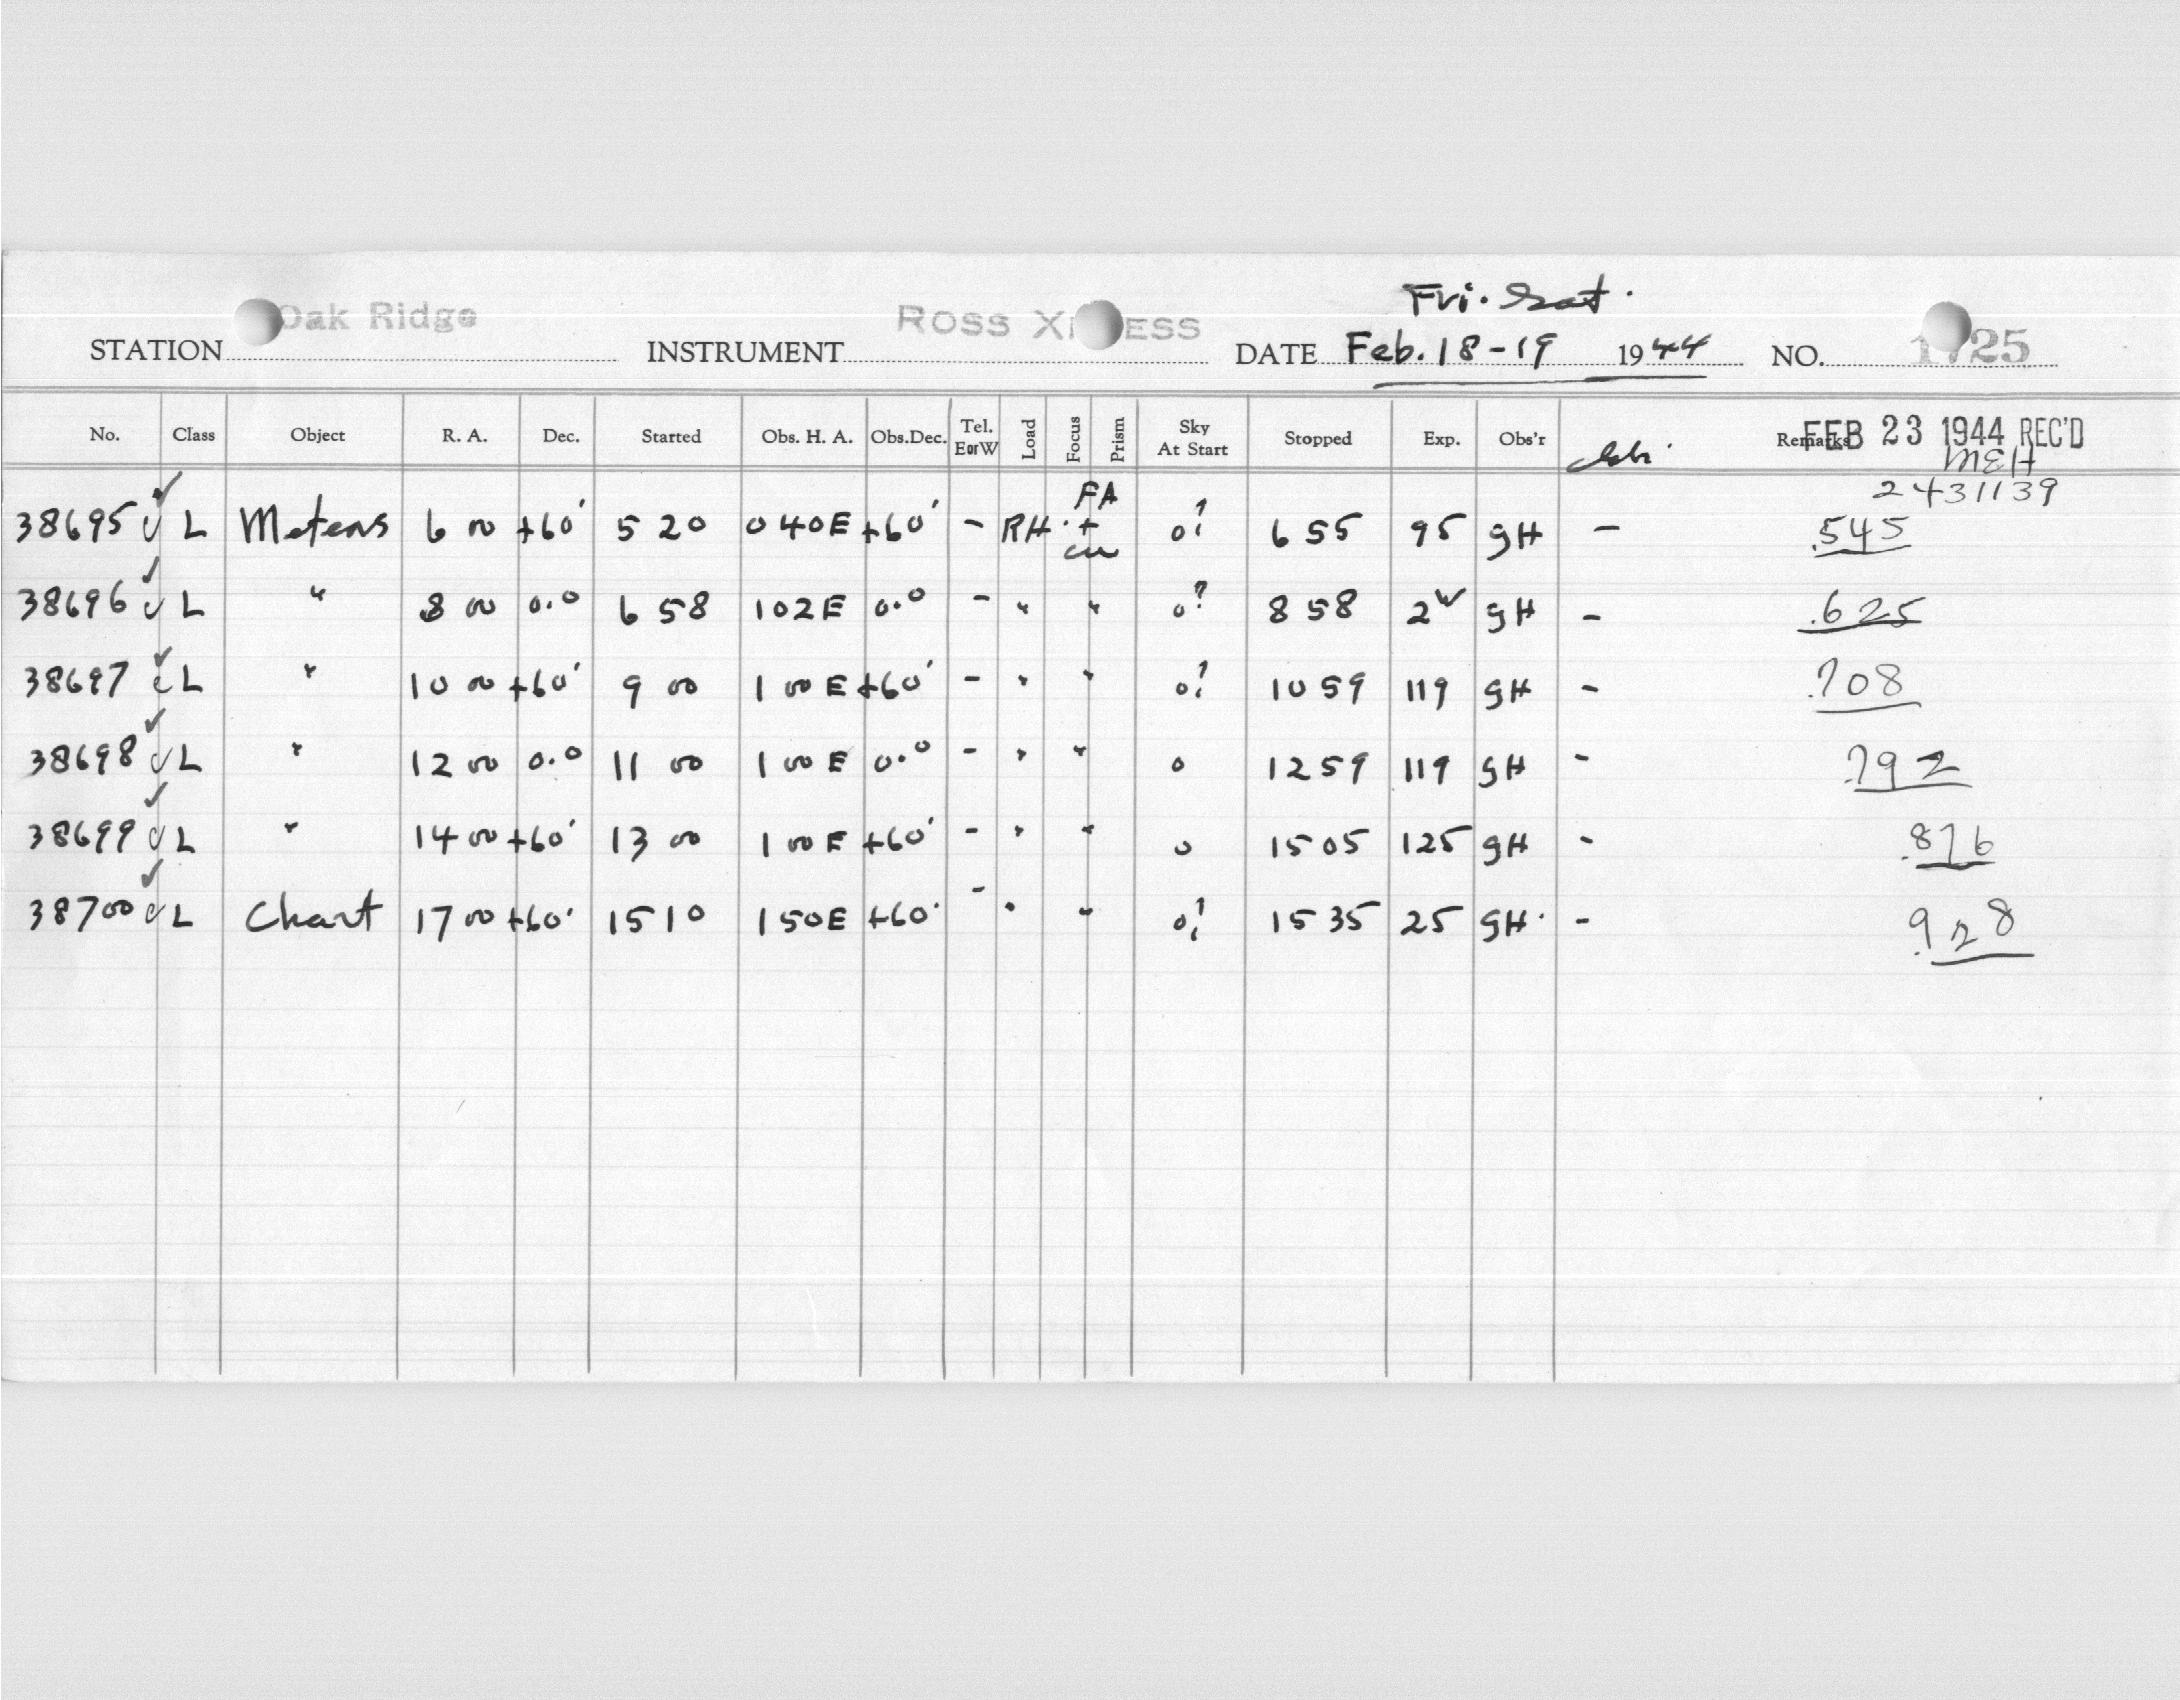 Fri. Sat.
STATION Oak Ridge INSTRUMENT ROSS X ESS DATE Feb. 18-19 1944 NO. 1725
No. Class Object R. A. Dec. Started Obs. H. A. Obs.Dec. Tel. EorW Load Focus Prism Sky At Start Stopped Exp. Obs'r Remarks FEB 23 1944 REC'D
MEH
2431139
38695 L Meteors 6 00 +60' 5 20 0 40E +60' - RH FA + cu 0? 6 55 95 gH - .545
38696 L " 8 00 0.0 6 58 1 02E 0.0 - " " 0? 8 58 2 gH - .625
38697 L " 10 00 +60' 9 00 1 00 E +60' - " " 0? 10 59 119 gH - .708
38698 L " 12 00 0.0 11 00 1 00 E 0.0 - " " 0 12 59 119 gH - .792
38699 L " 14 00 +60' 13 00 1 00 E +60' - " " 0 15 05 125 gH - .876
38700 L Chart 17 00 +60' 15 10 1 50E +60' - " " 0? 15 35 25 gH - .928